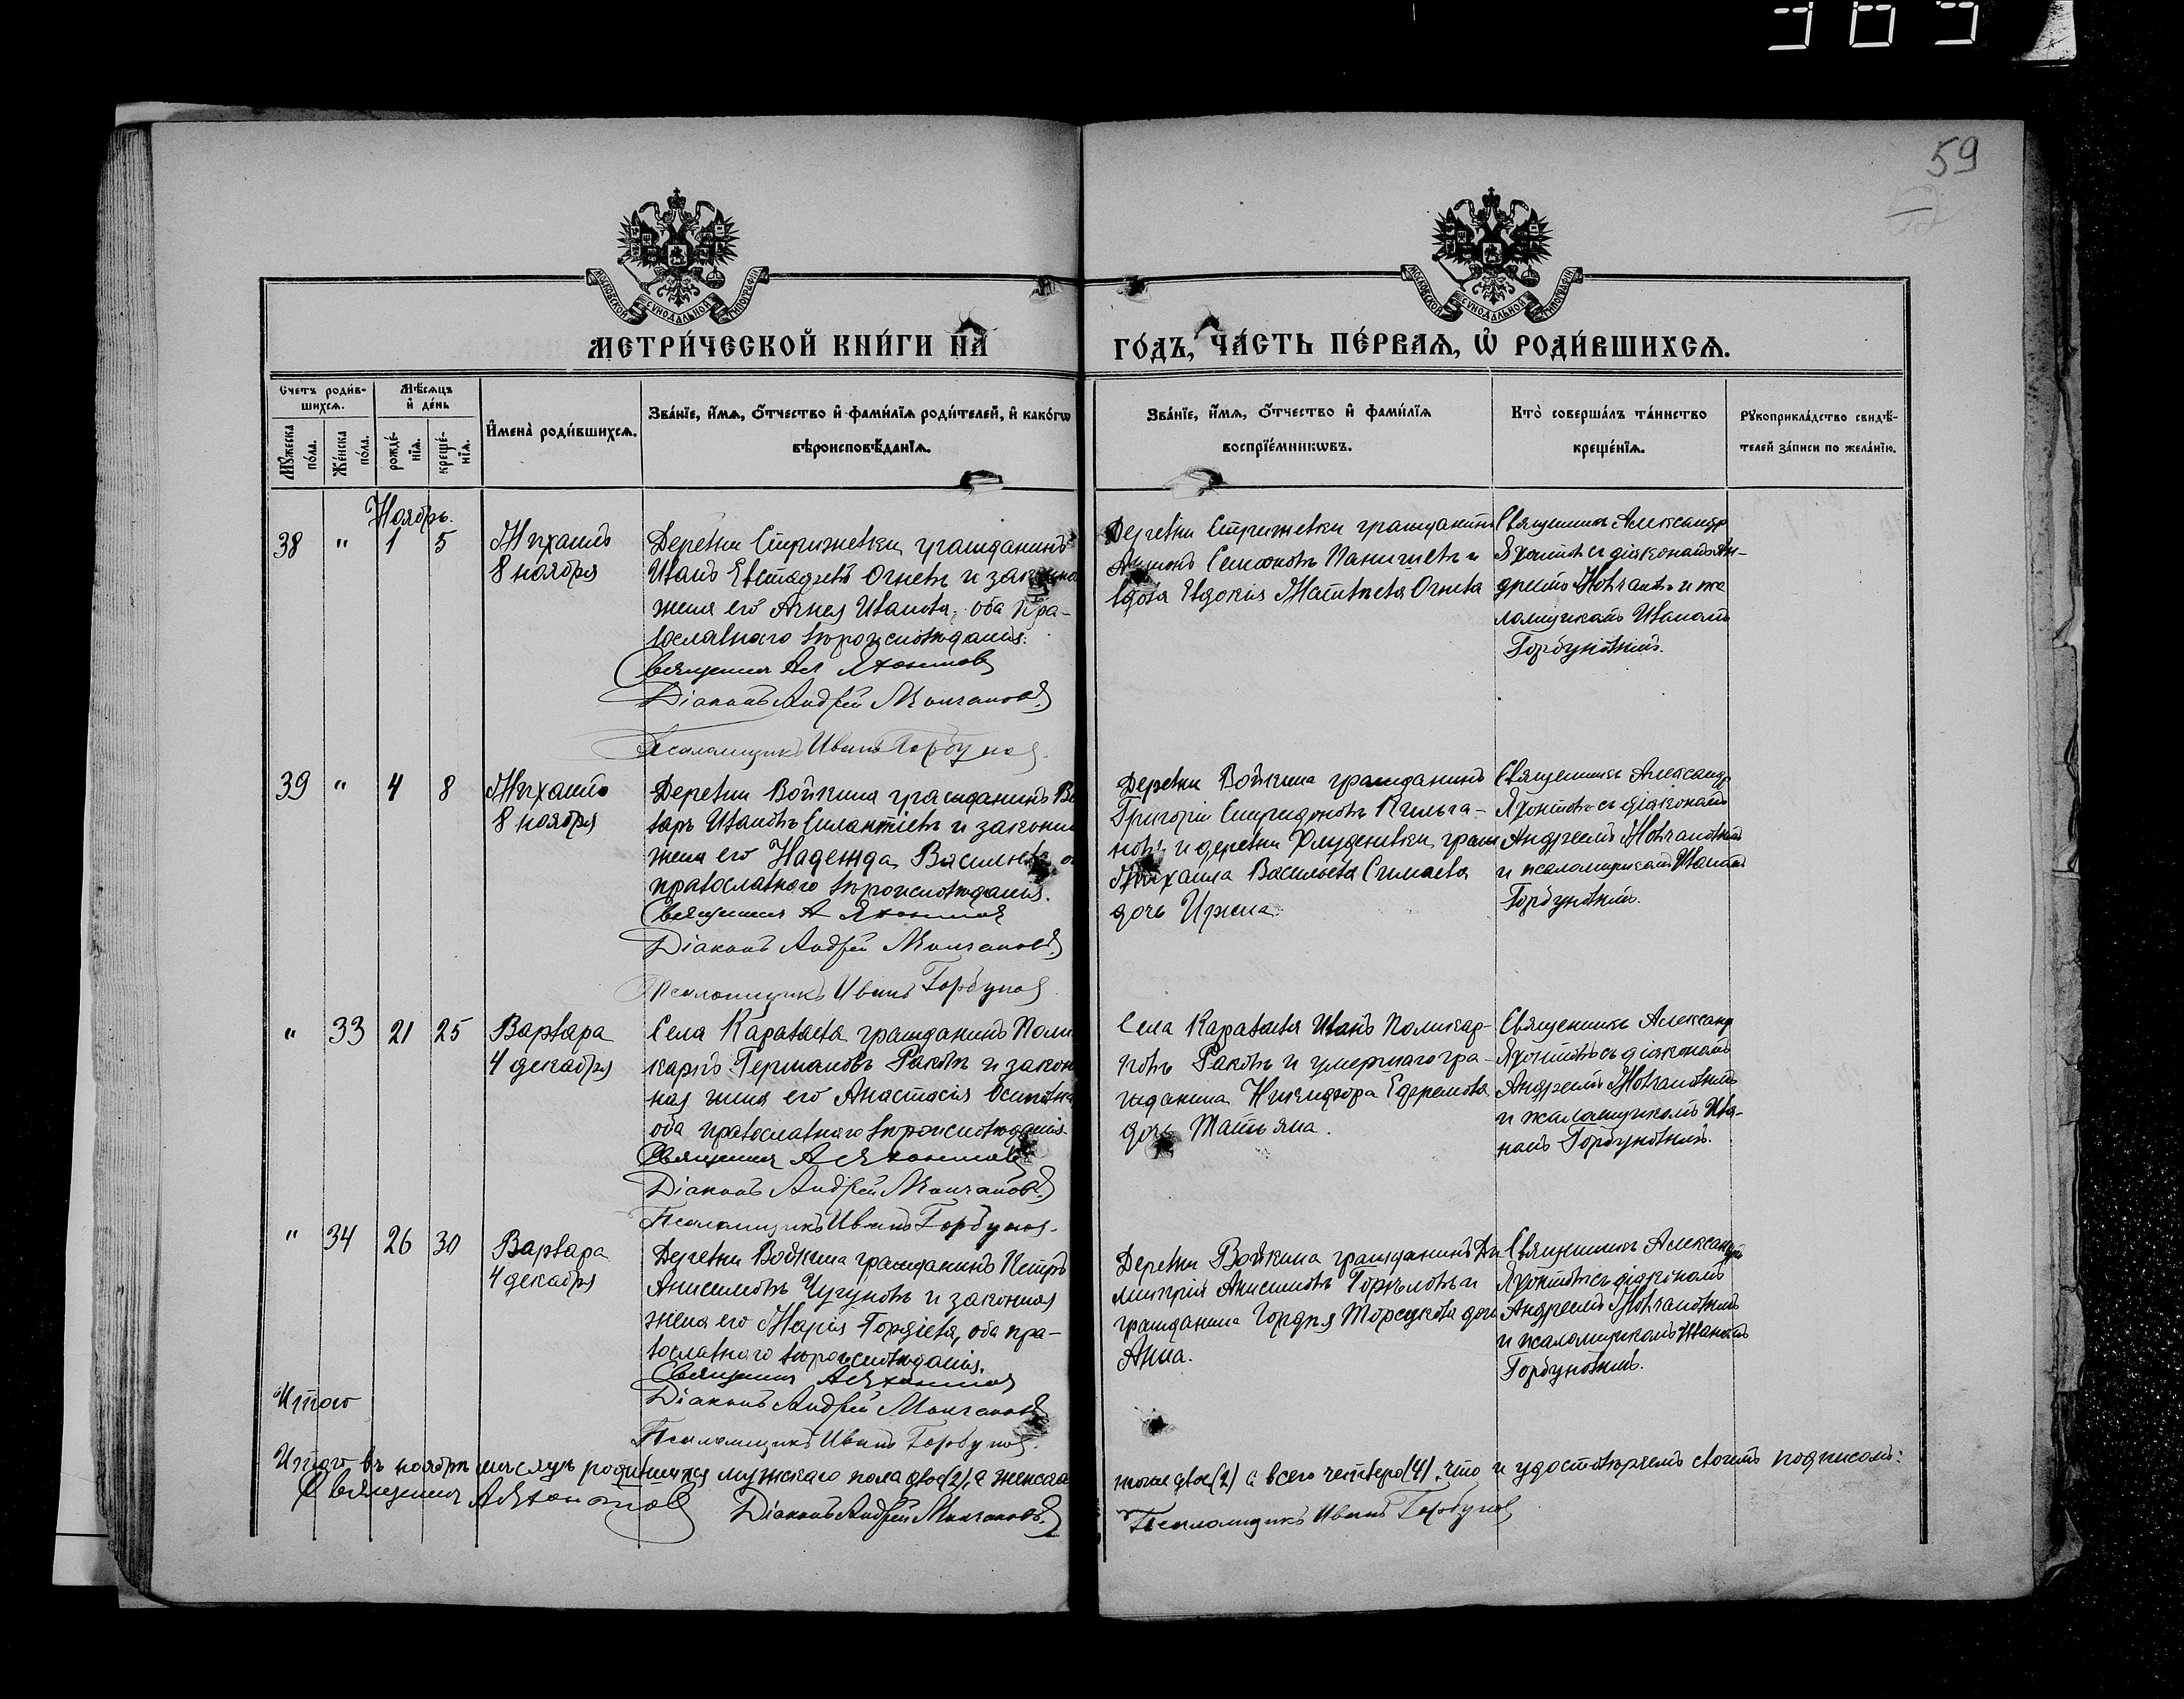 59
МОСКОВСКОЙ СѴНОДАЛЬНОЙ ТИПОГРАФІИ
МОСКОВСКОЙ СѴНОДАЛЬНОЙ ТИПОГРАФІИ
МЕТРИ́ЧЕСКОЙ КНИ́ГИ НА̀
ГО́ДЪ, ЧА́СТЬ ПЕ́РВАѦ, Ѡ҆ РОДИ́ВШИХСѦ.
Счетъ роди́в-
шихсѧ.
Мѣ́сѧцъ
и҆ де́нь
Мꙋ́жеска
по́ла.
Же́нска
по́ла.
рожде́-
нїѧ.
креще́-
нїѧ.
И҆мена̀ роди́вшихсѧ.
Зва́нїе, и҆́мѧ, ѻ҆́тчество и҆ фами́лїѧ роди́телей, и҆ како́гѡ
вѣроисповѣ́данїѧ.
Зва́нїе, и҆́мѧ, ѻ҆́тчество и҆ фами́лїѧ
воспрїе́мникѡвъ.
Кто̀ соверша́лъ та́инство
креще́нїѧ.
Рꙋкоприкла́дство свидѣ́-
телей за́писи по жела́нїю.
Ноябрь.
38 " 1 5
Михаилъ
8 ноября
Деревни Стрижевки, гражданинъ
Иванъ Евстафьевъ Огневъ и законна
жена его Агнея Иванова, оба пра-
вославнаго вѣроисповѣданія.
Священникъ Ал Яхонтовъ
Діаконъ Андрей Молчановъ.
Псаломщикъ Иванъ Горбунов
Деревни Стрижевки гражданинъ
Семеновъ и
вдова Евдокія Матвѣева Огнева
Священникъ Александр
Яхонтовъ съ діакономъ Ан-
дреемъ Молчановъ и пса
ломщикомъ Иваномъ
Горбуновымъ.
39 " 4 8
Михаилъ
8 ноября
Деревни Войкина гражданинъ
Ивановъ Силантіевъ и законн
жена его Надежда Васильева
православнаго вѣроисповѣданія.
Священникъ А Яхонтов
Діаконъ Андрей Молчановъ.
Псаломщикъ Иванъ Горбунов
Деревни Войкина гражданинъ
Григорій Спиридоновъ
и деревни граж
Михаила Васильева
дочь Ирина.
Священникъ Александр
Яхонтовъ съ діакономъ
Андреемъ Молчановымъ
и псаломщикомъ Иваномъ
Горбуновымъ.
" 33 21 25
Варвара
4 декабря
Села Каратаева гражданинъ Поли
карпъ Германовъ Раковъ и закон
ная жена его Анастасія Осиповна
оба православнаго вѣроисповѣданія.
Священникъ А Яхонтовъ
Діаконъ Андрей Молчановъ.
Псаломщикъ Иванъ Горбунов.
Села Каратаева Иванъ Поликар-
повъ Раковъ и умершаго гра-
жданина Никифора Ефремова
дочь Татьяна.
Священникъ Александр
Яхонтовъ съ діакономъ
Андреемъ Молчановымъ
и псаломщикомъ Ива-
номъ Горбуновымъ.
" 34 26 30
Варвара
4 декабря
Деревни Войкина гражданинъ Петръ
Анисимовъ Чугуновъ и законная
жена его Марія Гордіева, оба пра-
вославнаго вѣроисповѣданія.
Священникъ А Яхонтов
Діаконъ Андрей Молчановъ
Псаломщикъ Иванъ Горбунов.
Деревни Войкина гражданинъ Ди
митрія Анисимовъ и
гражданина Гордѣя дочь
Анна.
Священникъ Александръ
Яхонтовъ съ діакономъ
Андреемъ Молчановымъ
и псаломщикомъ Иваномъ
Горбуновымъ.
Итого
Итого въ ноябрѣ мѣсяцѣ родившихся мужскаго пола двое (2), а женска
Священникъ А Яхонтовъ Діаконъ Андрей Молчановъ.
двое (2) а всего четверо (4), что и удостовѣряемъ своимъ подписомъ:
Псаломщикъ Иванъ Горбунов